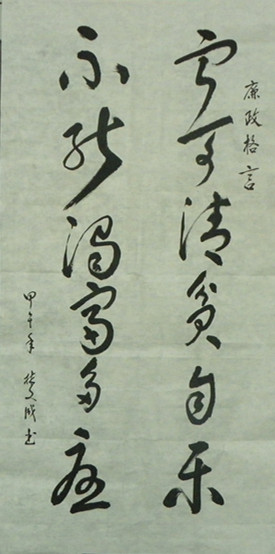 廉政格言
宁可清贫自乐
不能濁富多憂
甲午年 成书